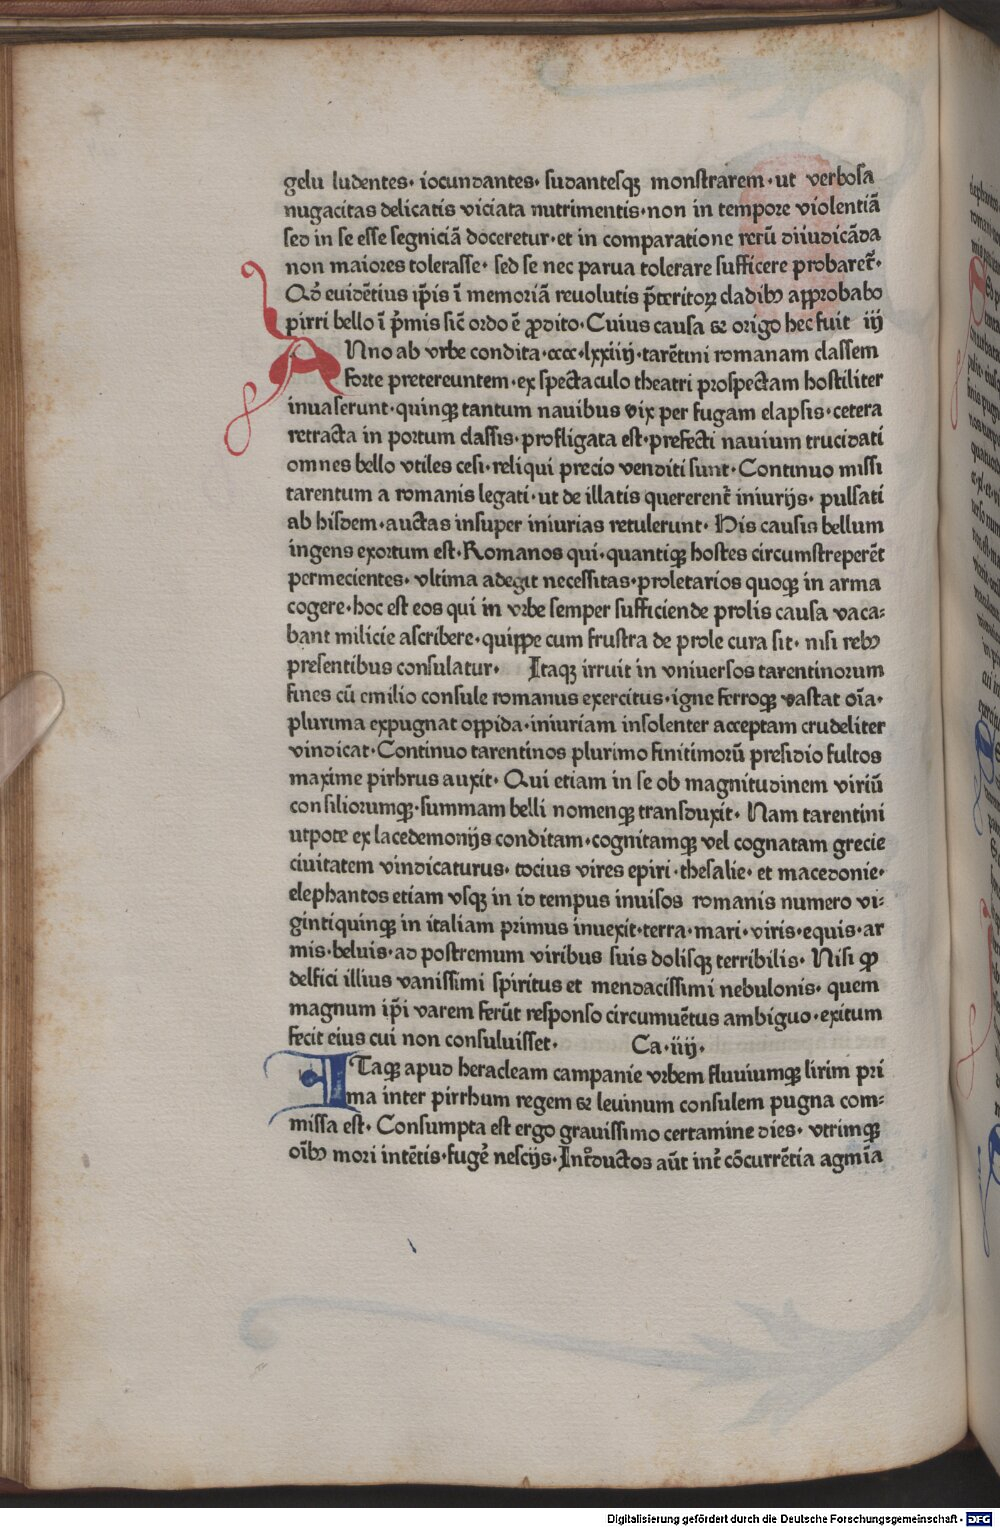 gelu ludentes· iocundantes· sudantesqꝫ monstrarem·ut verbosa
nugacitas delicatis viciata nutrimentis·non in tempore violentiā
sed in se esse segniciā doceretur·et in comparatione rerū diiudicāda
non maiores tolerasse· sed se nec parua tolerare sufficere probaret̃·
Qđ euidētius ip̄is ī memoriā reuolutis p̄teritoꝝ cladibꝰ approbabo
pirri bello ī p̄mis sic̄ ordo ē ꝓdito·Cuius causa & origo hec fuit iij
ANno ab vrbe condita·cccc·lxxiiij·tarētini romanam classem
forte pretereuntem·ex spectaculo theatri prospectam hostiliter
inuaserunt·quinqꝫ tantum nauibus vix per fugam elapsis·cetera
retracta in portum classis·profligata est·prefecti nauium trucidati
omnes bello vtiles cesi·reliqui precio venditi sunt·Continuo missi
tarentum a romanis legati·ut de illatis quererent̃ iniurijs· pulsati
ab hisdem·auctas insuper iniurias retulerunt· His causis bellum
ingens exortum est·Romanos qui·quantiqꝫ hostes circumstreperēt
permecientes· vltima adegit necessitas·proletarios quoqꝫ in arma
cogere·hoc est eos qui in vrbe semper sufficiende prolis causa vaca⸗
bant milicie ascribere·quippe cum frustra de prole cura sit· nisi rebꝰ
presentibus consulatur· Itaqꝫ irruit in vniuersos tarentinorum
fines cū emilio consule romanus exercitus·igne ferroqꝫ vastat oīa·
plurima expugnat oppida·iniuriam insolenter acceptam crudeliter
vindicat·Continuo tarentinos plurimo finitimorū presidio fultos
maxime pirhrus auxit· Qui etiam in se ob magnitudinem viriū
consiliorumqꝫ·summam belli nomenqꝫ transduxit· Nam tarentini
utpote ex lacedemonijs conditam·cognitamqꝫ vel cognatam grecie
ciuitatem vindicaturus· tocius vires epiri·thesalie· et macedonie·
elephantos etiam vsqꝫ in id tempus inuisos romanis numero vi⸗
gintiquinqꝫ in italiam primus inuexit·terra·mari·viris·equis·ar
mis·beluis·ad postremum viribus suis dolisqꝫ terribilis· Nisi ꝙ
delfici illius vanissimi spiritus et mendacissimi nebulonis· quem
magnum ip̄i varem ferūt responso circumuētus ambiguo·exitum
fecit eius cui non consuluisset· Ca·iiij·
ITaqꝫ apud heracleam campanie vrbem fluuiumqꝫ lirim pri
ma inter pirrhum regem & leuinum consulem pugna com⸗
missa est· Consumpta est ergo grauissimo certamine dies· vtrimqꝫ
oībꝰ mori intētis·fuge᷑ nescijs·Int̃ductos aūt int̃ cōcurrētia agmīa
Digitalisierung gefördert durch die Deutsche Forschungsgemeinschaft - DFG